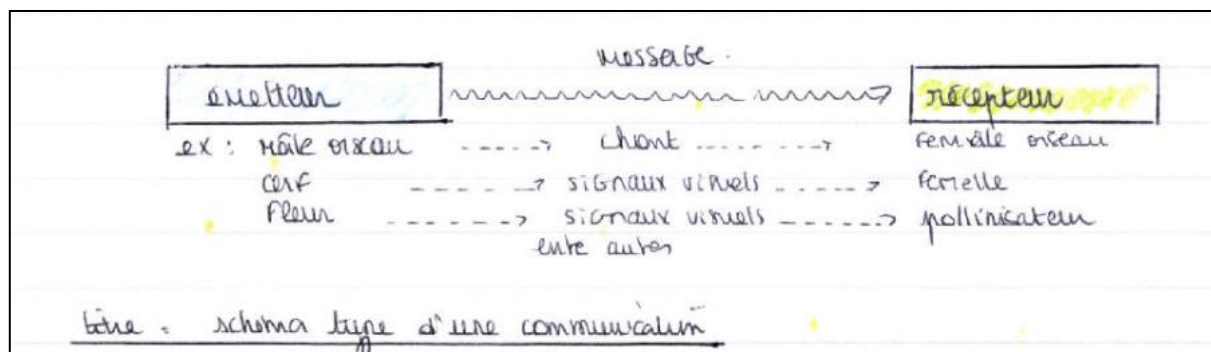 message.
émetteur récepteur
ex : mâle oiseau -----> chant -----> femelle oiseau
cerf -----> signaux visuels -----> femelle
Fleur -----> signaux visuels -----> pollinisateur
entre autres
titre : schéma type d'une communication